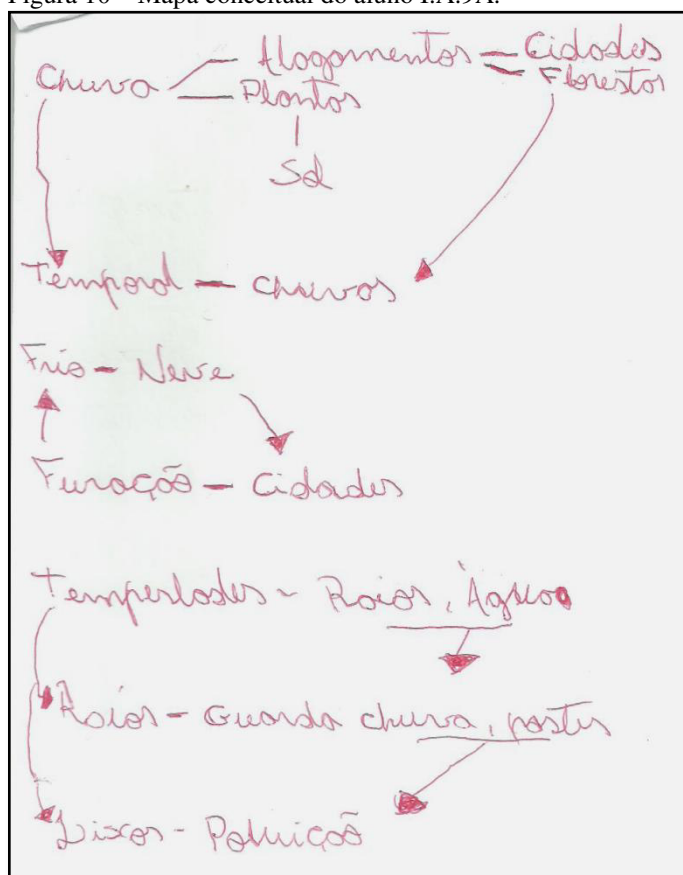 Figura 10 – Mapa conceitual do aluno I.A.9A.
Chuva Alagamentos Cidades
Plantas Florestas
Sol
Temporal - chuvas
Frio - Neve
Furacão - Cidades
Tempestades - Raios, Água
Raios - Guarda chuva, postes
Lixos - Poluição